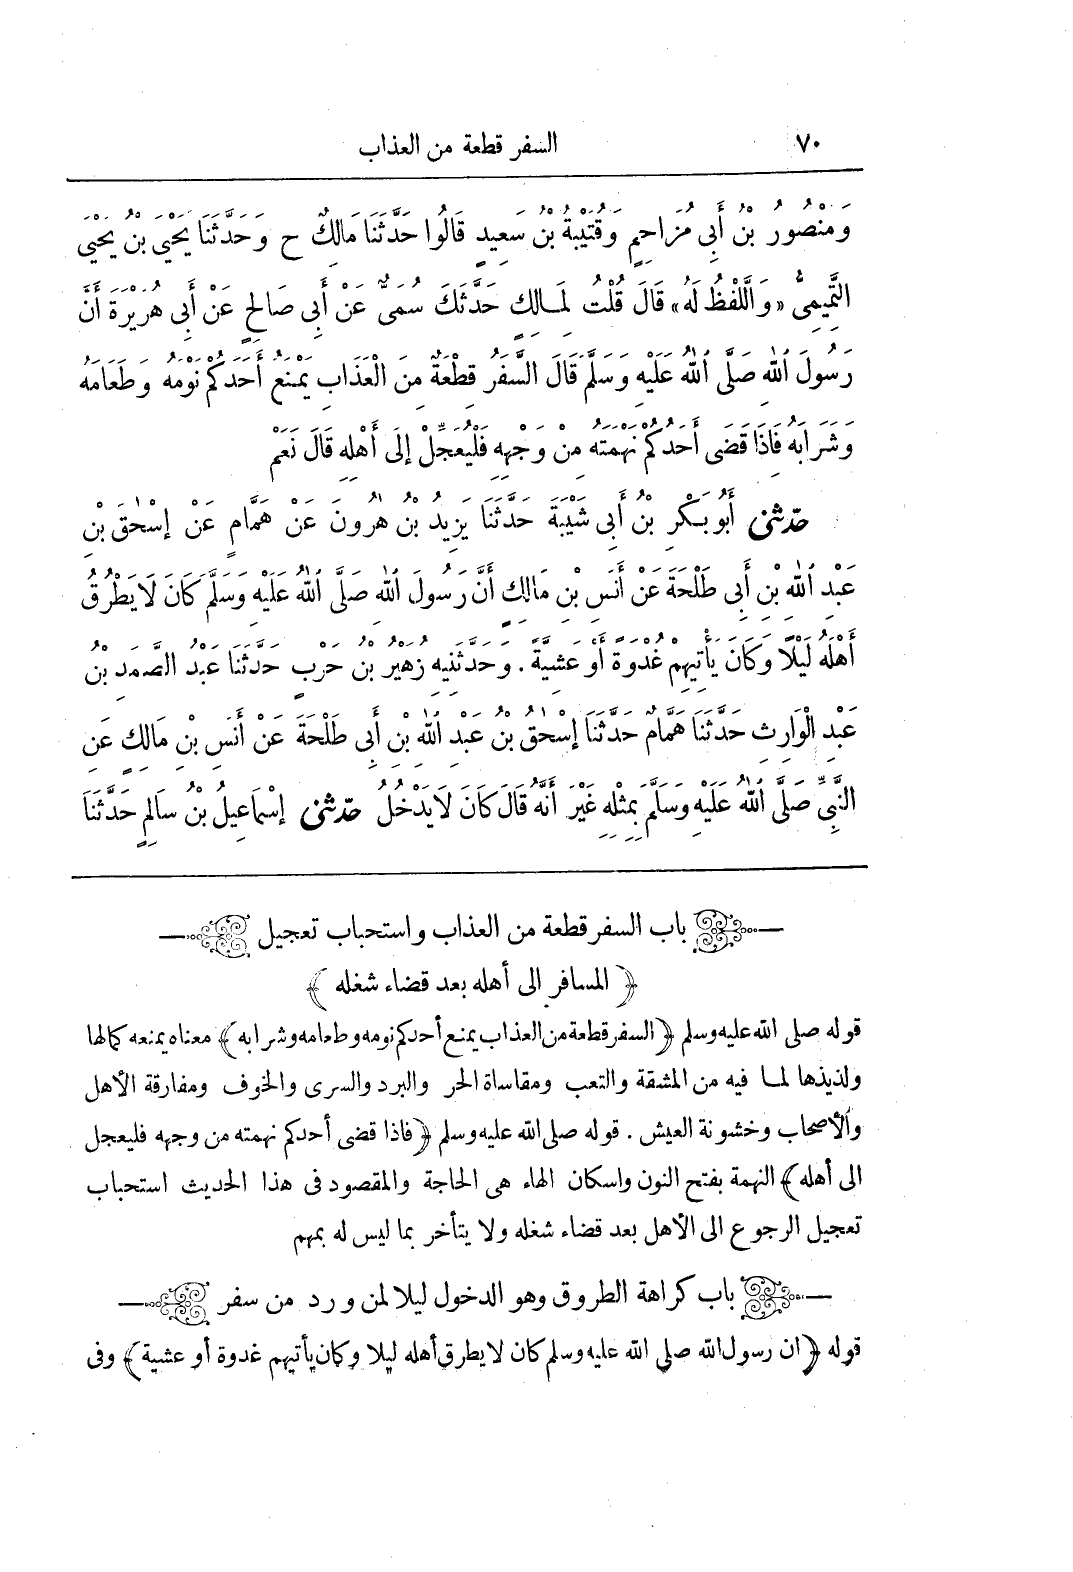 ٧٠ السفر قطعة من العذاب
وَمَنْصُورُ بْنُ أَبِى مُزَاحِمٍ وَقُتَيْبَةُ بْنُ سَعِيدٍ قَالُوا حَدَّثَنَا مَالِكٌ ح وَحَدَّثَنَا يَحْيَى بْنُ يَحْيَى
التَّمِيمِىُّ «وَاللَّفْظُ لَهُ» قَالَ قُلْتُ لِمَالِكٍ حَدَّثَكَ سُمَىٌّ عَنْ أَبِى صَالِحٍ عَنْ أَبِى هُرَيْرَةَ أَنَّ
رَسُولَ اللهِ صَلَّى اللهُ عَلَيْهِ وَسَلَّمَ قَالَ السَّفَرُ قِطْعَةٌ مِنَ الْعَذَابِ يَمْنَعُ أَحَدَكُمْ نَوْمَهُ وَطَعَامَهُ
وَشَرَابَهُ فَاذَا قَضَى أَحَدُكُمْ نَهْمَتَهُ مِنْ وَجْهِهِ فَلْيُعَجِّلْ إِلَى أَهْلِهِ قَالَ نَعَمْ
حدّثنى أَبُو بَكْرِ بْنُ أَبِى شَيْبَةَ حَدَّثَنَا يَزِيدُ بْنُ هٰرُونَ عَنْ هَمَّامٍ عَنْ إِسْحٰقَ بْنِ
عَبْدِ اللهِ بْنِ أَبِى طَلْحَةَ عَنْ أَنَسِ بْنِ مَالِكٍ أَنَّ رَسُولَ اللهِ صَلَّى اللهُ عَلَيْهِ وَسَلَّمَ كَانَ لَا يَطْرُقُ
أَهْلَهُ لَيْلًا وَكَانَ يَأْتِيهِمْ غُدْوَةً أَوْ عَشِيَّةً . وَحَدَّثَنِيهِ زُهَيْرُ بْنُ حَرْبٍ حَدَّثَنَا عَبْدُ الصَّمَدِ بْنُ
عَبْدِ الْوَارِثِ حَدَّثَنَا هَمَّامٌ حَدَّثَنَا إِسْحٰقُ بْنُ عَبْدِ اللهِ بْنِ أَبِى طَلْحَةَ عَنْ أَنَسِ بْنِ مَالِكٍ عَنِ
النَّبِىِّ صَلَّى اللهُ عَلَيْهِ وَسَلَّمَ بِمِثْلِهِ غَيْرَ أَنَّهُ قَالَ كَانَ لَا يَدْخُلُ حدّثنى إِسْمَاعِيلُ بْنُ سَالِمٍ حَدَّثَنَا
باب السفر قطعة من العذاب واستحباب تعجيل
﴿ المسافر الى أهله بعد قضاء شغله ﴾
قوله صلى الله عليه وسلم ﴿السفر قطعة من العذاب يمنع أحدكم نومه وطعامه وشرابه﴾ معناه يمنعه كمالها
ولذيذها لما فيه من المشقة والتعب ومقاساة الحر والبرد والسرى والخوف ومفارقة الأهل
والأصحاب وخشونة العيش . قوله صلى الله عليه وسلم ﴿فاذا قضى أحدكم نهمته من وجهه فليعجل
الى أهله﴾ النهمة بفتح النون واسكان الهاء هى الحاجة والمقصود فى هذا الحديث استحباب
تعجيل الرجوع الى الأهل بعد قضاء شغله ولا يتأخر بما ليس له بمهم
باب كراهة الطروق وهو الدخول ليلا لمن ورد من سفر
قوله ﴿ان رسول الله صلى الله عليه وسلم كان لا يطرق أهله ليلا وكان يأتيهم غدوة أو عشية﴾ وفى